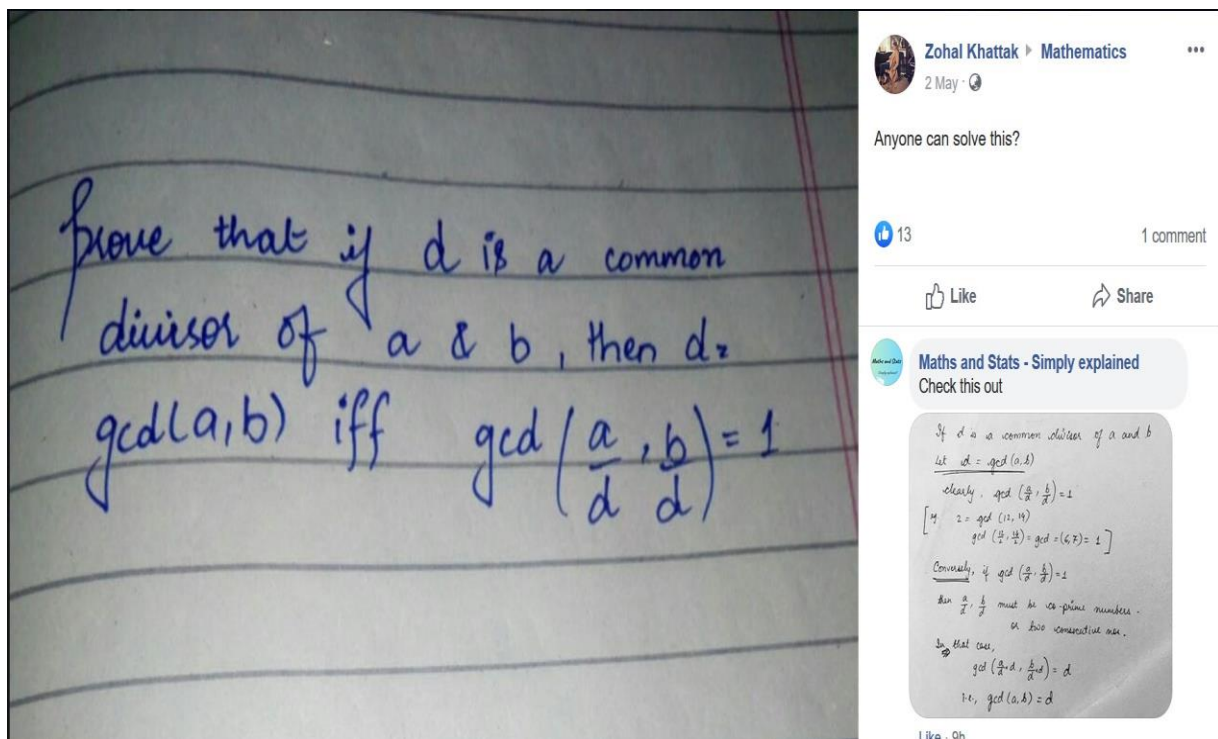 Prove that if d is a common
divisor of a & b, then d=
gcd(a,b) iff gcd(a/d, b/d)=1
Zohal Khattak ▸ Mathematics
2 May ·
Anyone can solve this?
13
1 comment
Like
Share
Maths and Stats - Simply explained
Check this out
If d is a common divisor of a and b
Let d = gcd(a,b)
clearly, gcd(a/d, b/d)=1
2 = gcd (12, 14)
gcd(12/2, 14/2) = gcd = (6,7) = 1 ]
Conversely, if gcd(a/d, b/d)=1
then a/d, b/d must be co-prime numbers.
or two consecutive nos.
In that case,
gcd(a/d·d, b/d·d) = d
i.e., gcd(a,b) = d
Like · 9h